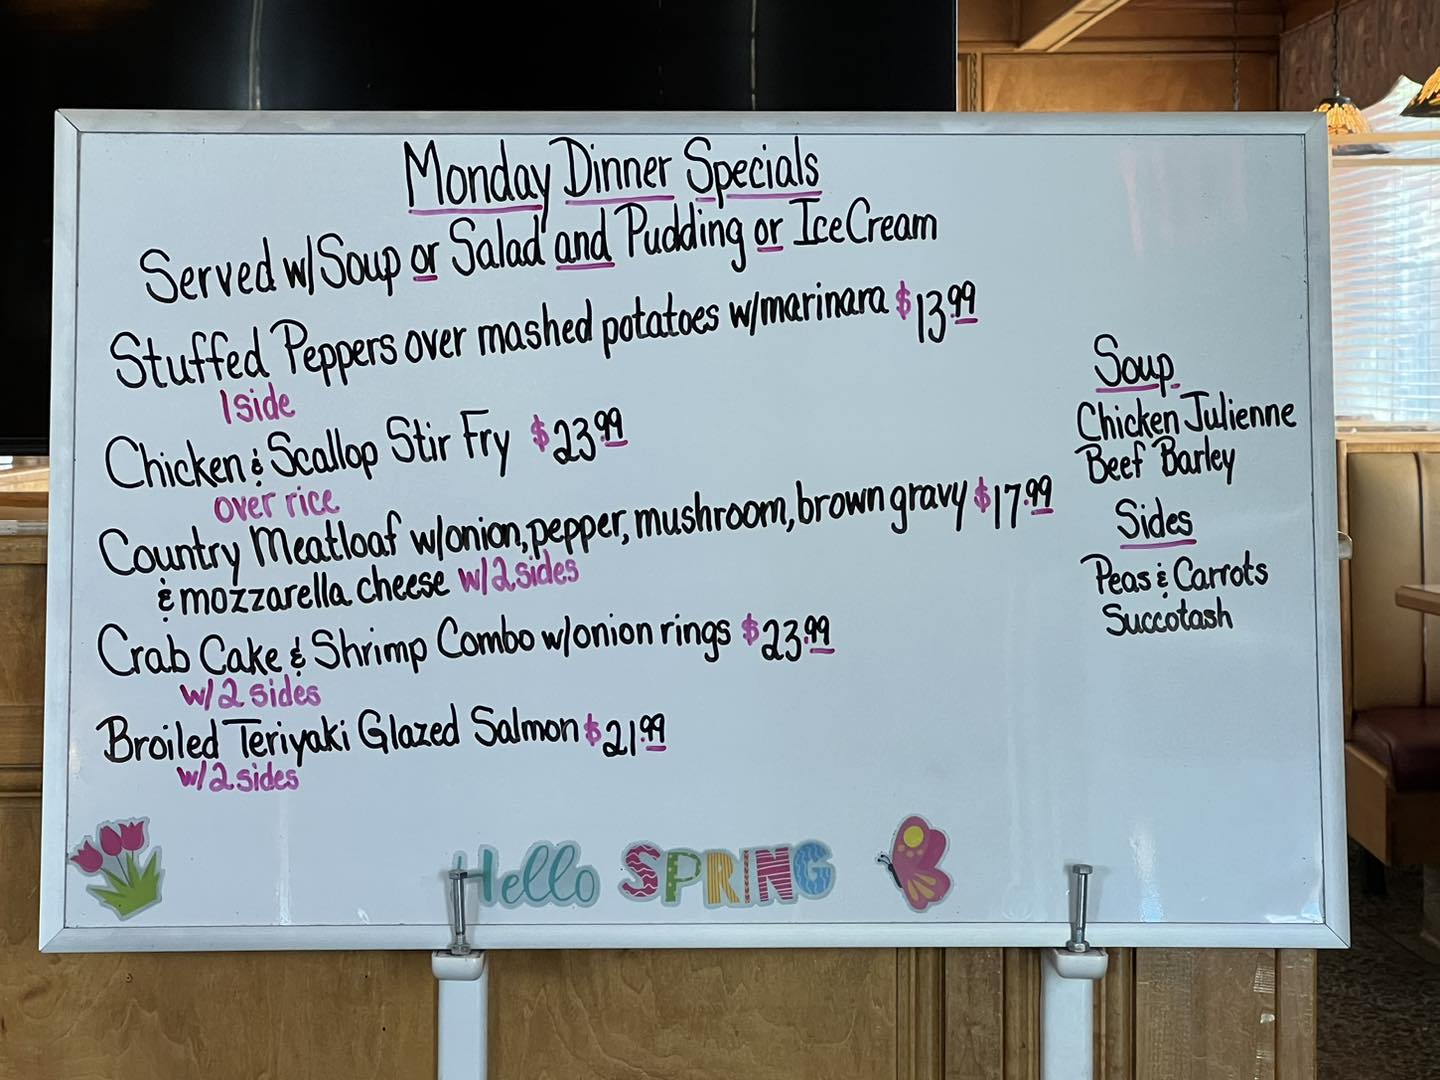 Monday Dinner Specials
Served w/Soup or Salad and Pudding or Ice Cream
Stuffed Peppers over mashed potatoes w/marinara $13.99
1 side
Chicken & Scallop Stir Fry $23.99
over rice
Country Meatloaf w/onion, pepper, mushroom, brown gravy $17.99
& mozzarella cheese w/2 sides
Crab Cake & Shrimp Combo w/onion rings $23.99
w/2 sides
Broiled Teriyaki Glazed Salmon $21.99
w/2 sides
Soup
Chicken Julienne
Beef Barley
Sides
Peas & Carrots
Succotash
Hello SPRING